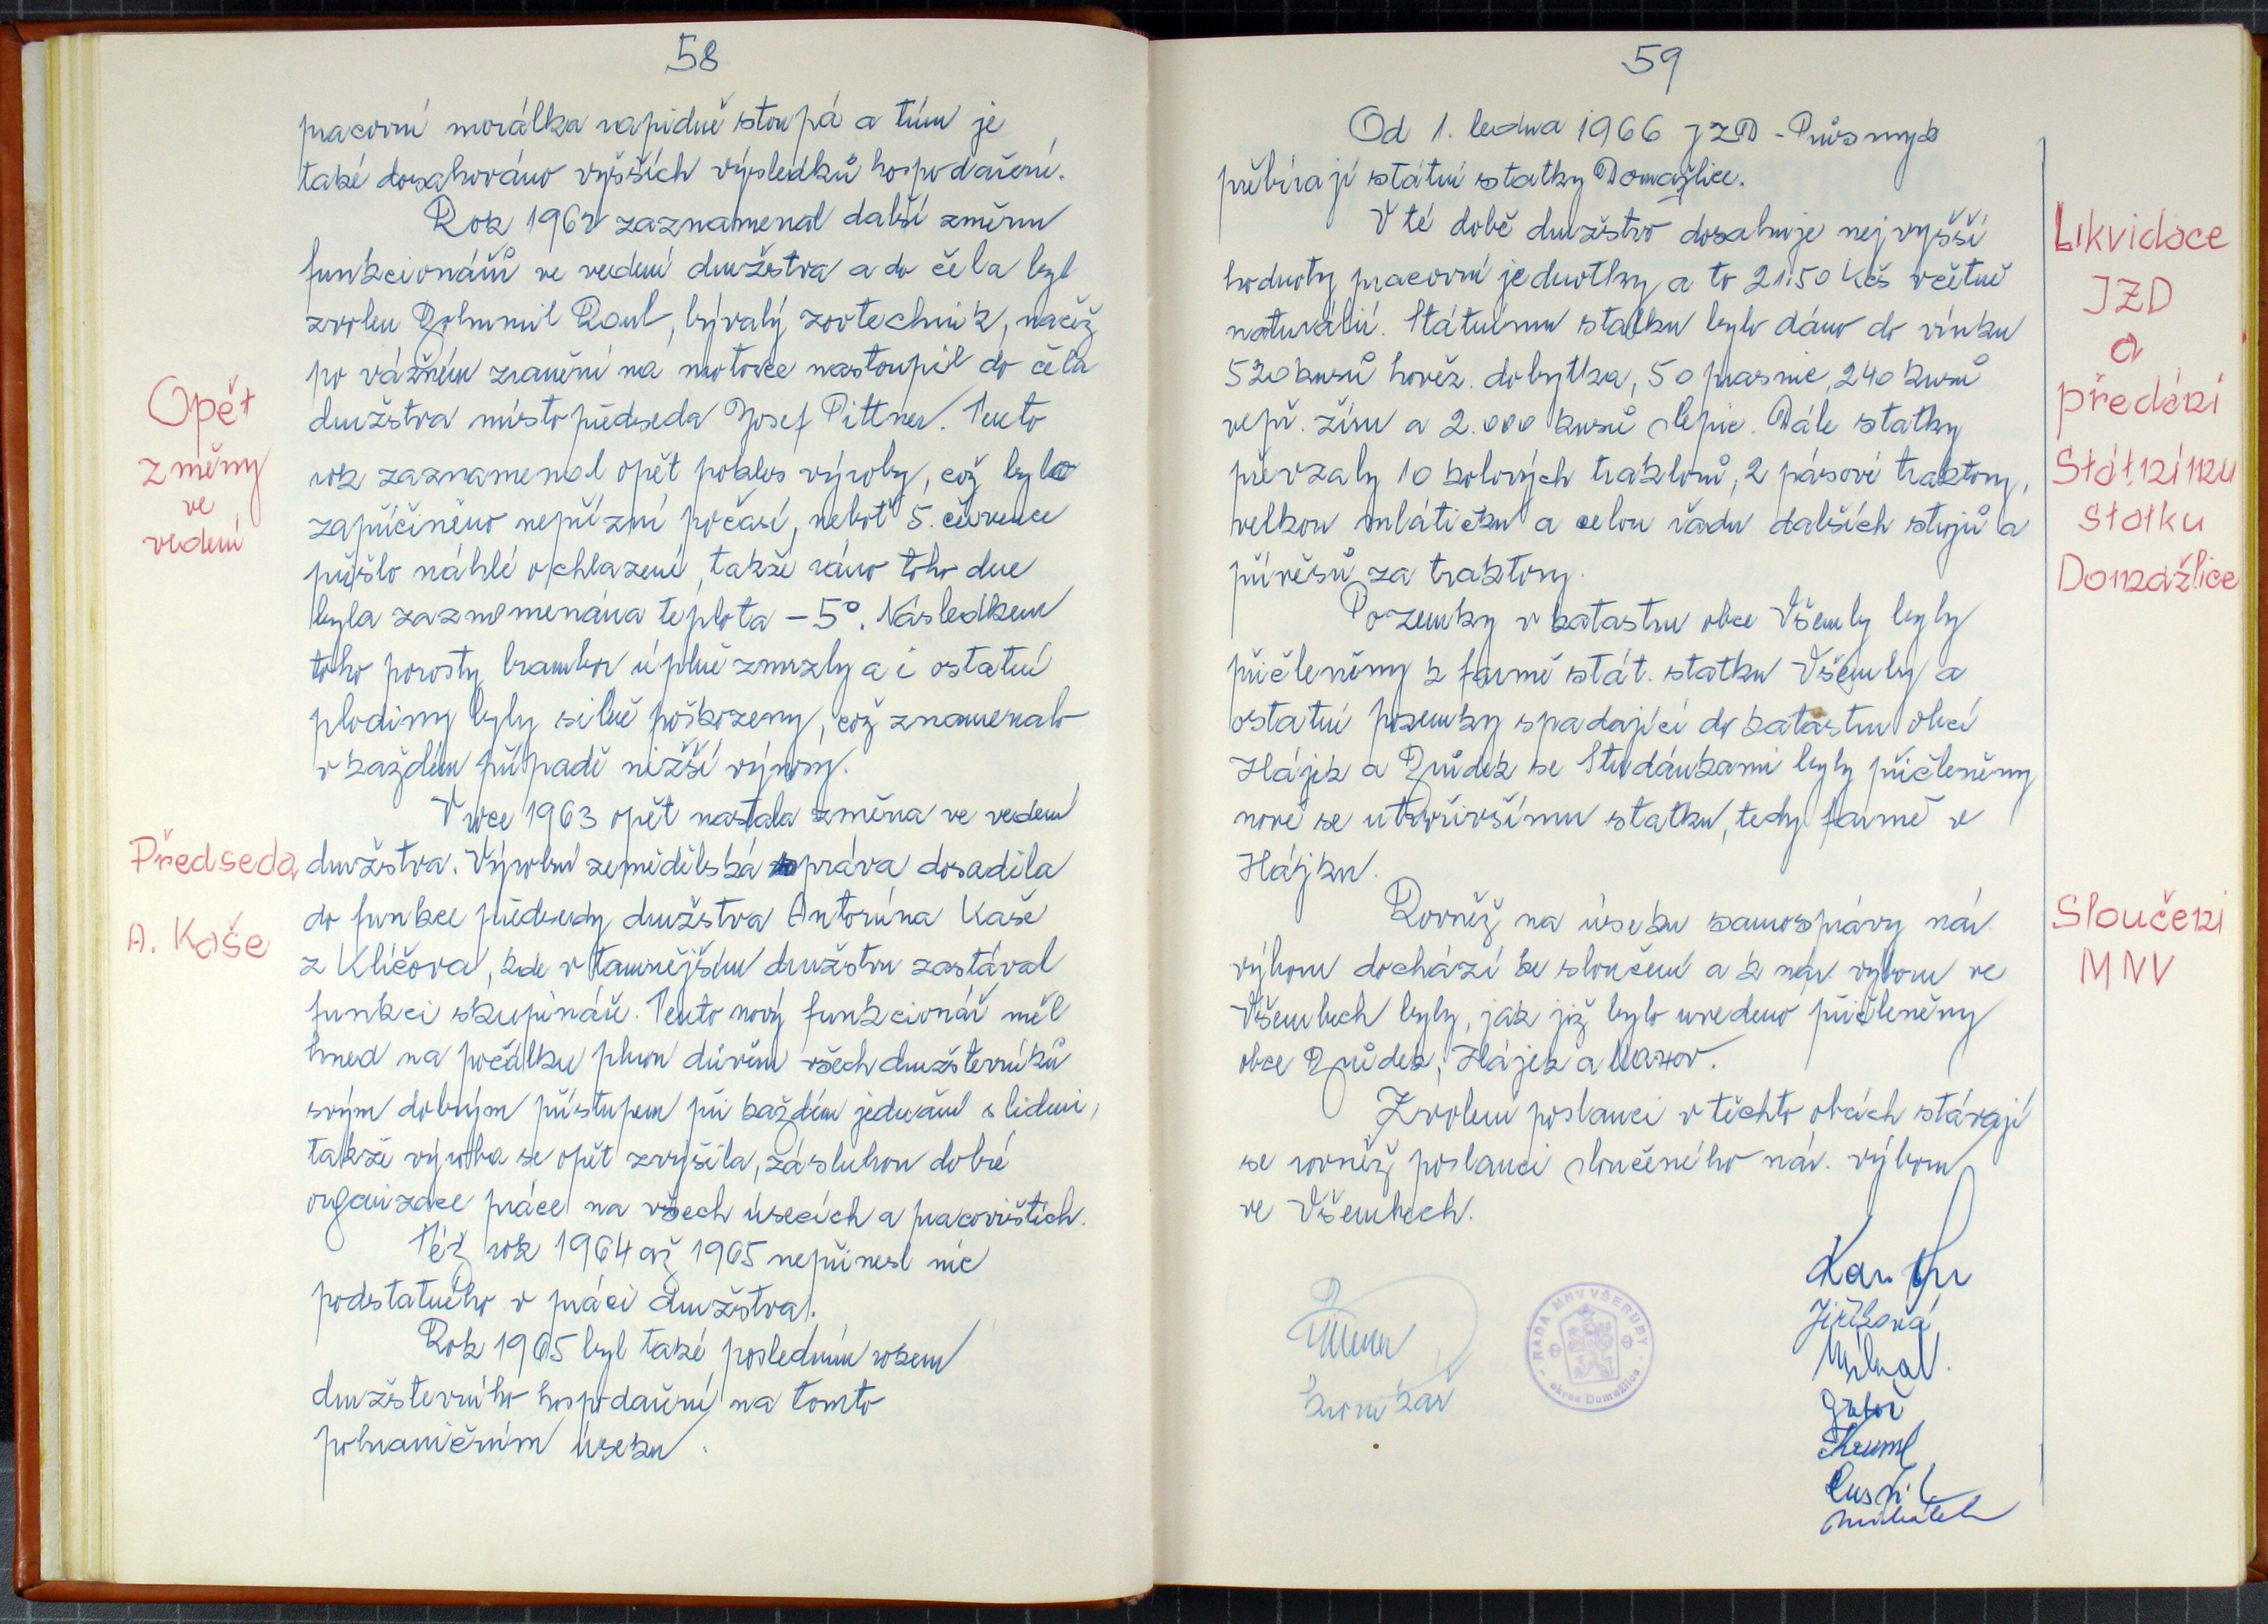 58
pracovní morálka rapidně stoupá a tím je
také dosahováno vyšších výsledků hospodaření.
Rok 1962 zaznamenal další změnu
funkcionářů ve vedení družstva a do čela byl
zvolen Bohumil Roul, bývalý zootechnik, načež
po vážném zranění na motorce nastoupil do čela
družstva místopředseda Josef Pittner. Tento
rok zaznamenal opět pokles výroby, což bylo
zapříčiněno nepřízní počasí, neboť 5. července
přišlo náhlé ochlazení, takže ráno toho dne
byla zaznamenána teplota -5°. Následkem
toho porosty brambor úplně zmrzly a i ostatní
plodiny byly silně poškozeny, což znamenalo
v každém případě nižší výnosy.
V roce 1963 opět nastala změna ve vedení
družstva. Výrobní zemědělská správa dosadila
do funkce předsedy družstva Antonína Kaše
z Klíčova, kde v tamnějším družstvu zastával
funkci skupináře. Tento nový funkcionář měl
hned na počátku plnou důvěru všech družstevníků
svým dobrým přístupem při každém jednání s lidmi,
takže výroba se opět zvýšila, zásluhou dobré
organizace práce na všech úsecích a pracovištích.
Též rok 1964 až 1965 nepřinesl nic
podstatného v práci družstva.
Rok 1965 byl také posledním rokem
družstevního hospodaření na tomto
pohraničním úseku.
Opět
změny
ve
vedení
Předseda
A. Kaše
59
Od 1. ledna 1966 JZD - Průsmyk
přebírají státní statky Domažlice.
V té době družstvo dosahuje nejvyšší
hodnoty pracovní jednotky a to 21.50 Kčs včetně
naturálií. Státnímu statku bylo dáno do vínku
520 kusů hověz. dobytka, 50 prasnic, 240 kusů
vepř. žíru a 2.000 kusů slepic. Dále statky
převzaly 10 kolových traktorů, 2 pásové traktory,
velkou mlátičku a celou řadu dalších strojů a
přívěsů za traktory.
Pozemky v katastru obce Všeruby byly
přičleněny k farmě stát. statku Všeruby a
ostatní pozemky spadající do katastru obcí
Hájek a Brůdek se Studánkami byly přičleněny
nově se utvořivšímu statku, tedy farmě v
Hájku.
Rovněž na úseku samosprávy nár.
výboru dochází ke sloučení a k nár. výboru ve
Všerubech byly, jak již bylo uvedeno přičleněny
obce Brůdek, Hájek a Maxov.
Zvolení poslanci v těchto obcích stávají
se rovněž poslanci sloučeného nár. výboru
ve Všerubech.
Likvidace
JZD
a
předání
Státnímu
statku
Domažlice
Sloučení
MNV
kronikář
RADA MNV VŠERUBY
okres Domažlice
Jiříková